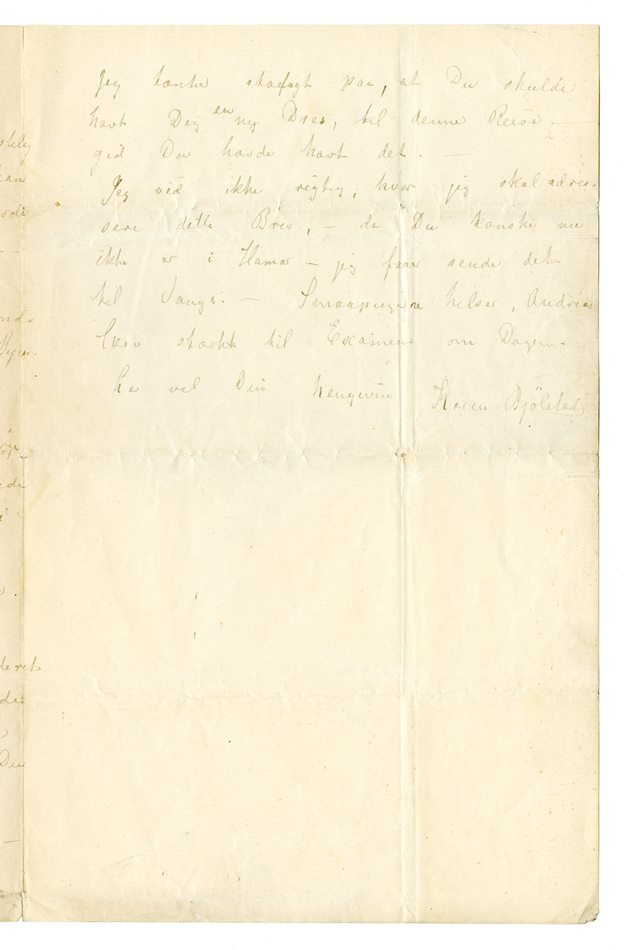 Jeg tænkte stadigt paa, at Du skulde
havt Dig en ny Dres, til denne Reise –
gid Du havde havt det. –
Jeg ved ikke rigtig, hvor jeg skal adres-
sere dette Brev, – da Du kanske nu
ikke er i Hamar – jeg faar sende det
til Vangs. – Smaapigerne hilser, Andrea
læser stærkt til Examens om Dagen.
Lev vel Din hengivne Karen Bjölstad